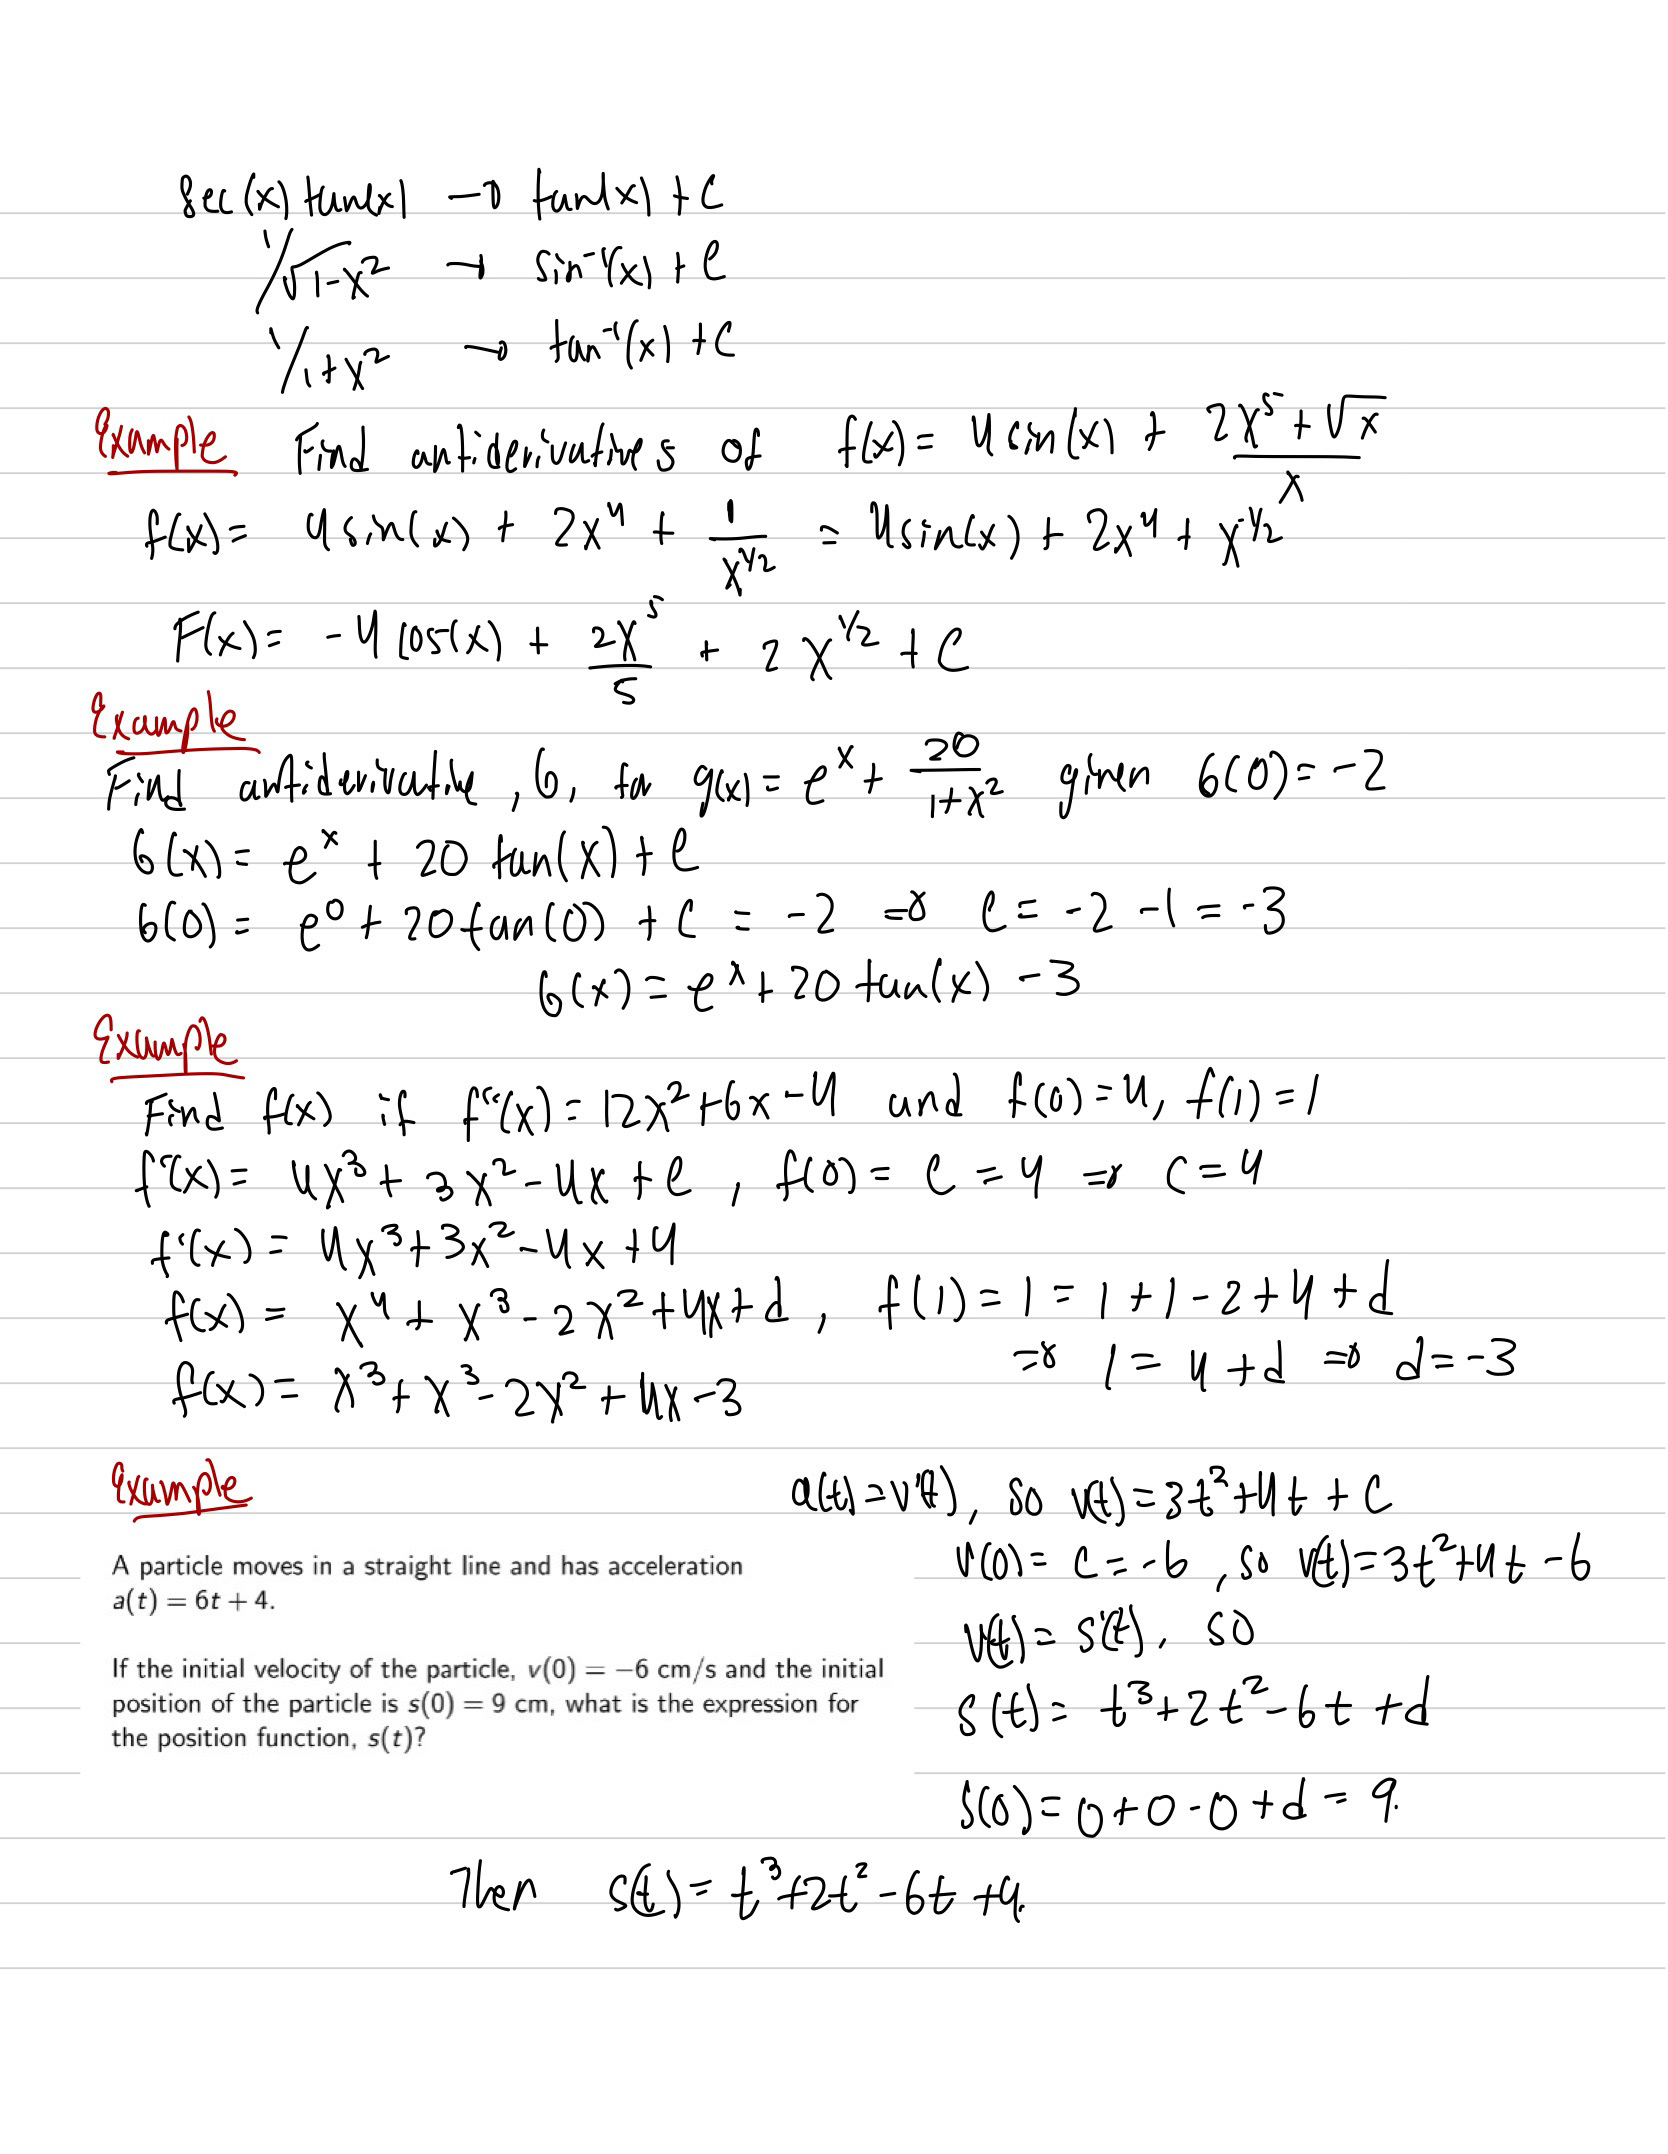 sec(x) tan(x) → tan(x) + C
1/√1-x² → sin⁻¹(x) + C
1/1+x² → tan⁻¹(x) + C
Example Find antiderivatives of f(x) = 4 sin(x) + (2x⁵ + √x)/x
f(x) = 4 sin(x) + 2x⁴ + 1/x^(1/2) = 4 sin(x) + 2x⁴ + x^(-1/2)
F(x) = -4 cos(x) + 2x⁵/5 + 2x^(1/2) + C
Example
Find antiderivative, G, for g(x) = eˣ + 20/(1+x²) given G(0) = -2
G(x) = eˣ + 20 tan(x) + C
G(0) = e⁰ + 20 tan(0) + C = -2 ⇒ C = -2 -1 = -3
G(x) = eˣ + 20 tan(x) - 3
Example
Find f(x) if f''(x) = 12x² + 6x - 4 and f(0) = 4, f(1) = 1
f'(x) = 4x³ + 3x² - 4x + C, f(0) = C = 4 ⇒ C = 4
f'(x) = 4x³ + 3x² - 4x + 4
f(x) = x⁴ + x³ - 2x² + 4x + d, f(1) = 1 = 1 + 1 - 2 + 4 + d
⇒ 1 = 4 + d ⇒ d = -3
f(x) = x³ + x³ - 2x² + 4x - 3
Example
A particle moves in a straight line and has acceleration
a(t) = 6t + 4.
If the initial velocity of the particle, v(0) = −6 cm/s and the initial
position of the particle is s(0) = 9 cm, what is the expression for
the position function, s(t)?
a(t) = v'(t), so v(t) = 3t² + 4t + C
v(0) = C = -6, so v(t) = 3t² + 4t - 6
v(t) = s'(t), so
s(t) = t³ + 2t² - 6t + d
s(0) = 0 + 0 - 0 + d = 9.
Then s(t) = t³ + 2t² - 6t + 9.